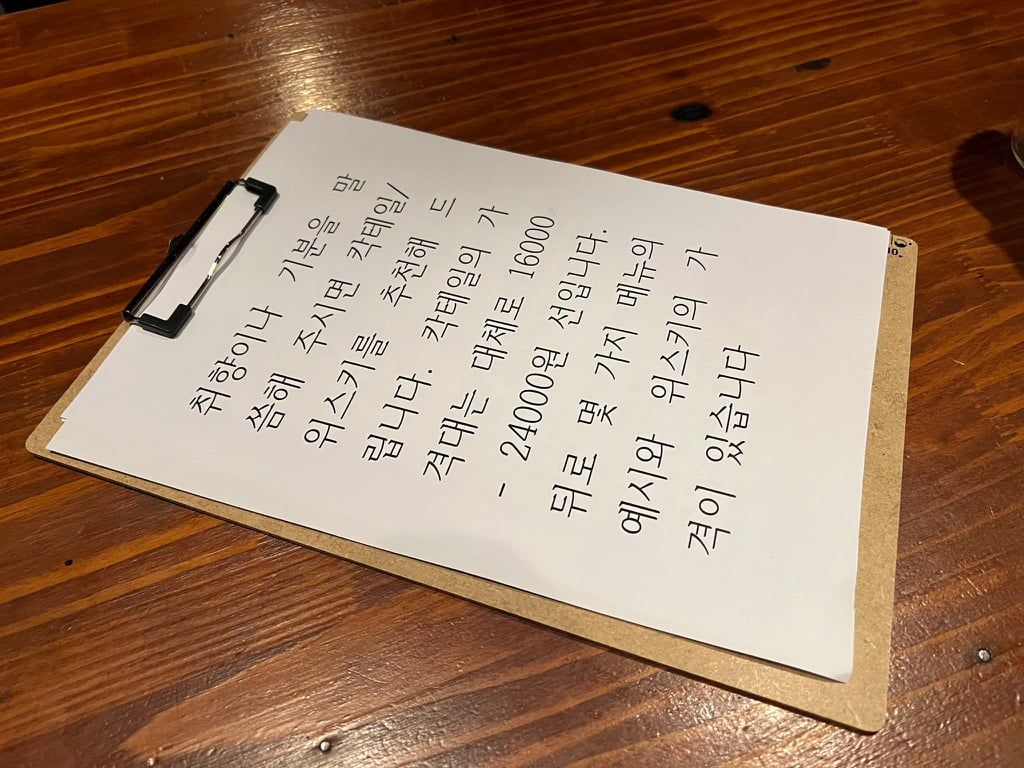 취향이나 기분을 말
씀해 주시면 칵테일/
위스키를 추천해 드
립니다. 칵테일의 가
격대는 대체로 16000
- 24000원 선입니다.
뒤로 몇 가지 메뉴의
예시와 위스키의 가
격이 있습니다